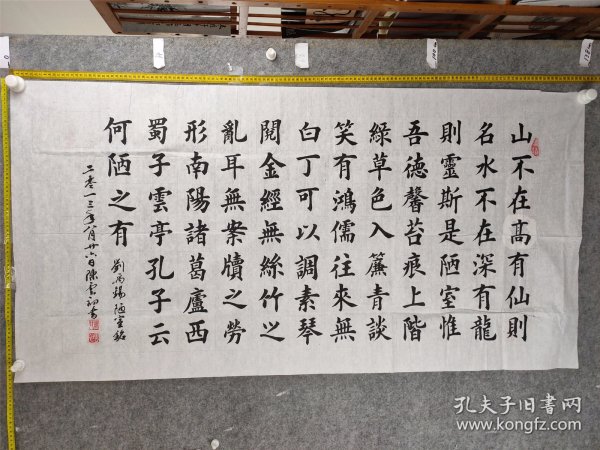 山不在高有仙則
名水不在深有龍
則靈斯是陋室惟
吾德馨苔痕上階
綠草色入簾青談
笑有鴻儒往來無
白丁可以調素琴
閱金經無絲竹之
亂耳無案牘之勞
形南陽諸葛廬西
蜀子雲亭孔子云
何陋之有
劉禹錫陋室銘
二零一三年八月廿六日陳雲初書
孔夫子旧书网
www.kongfz.com